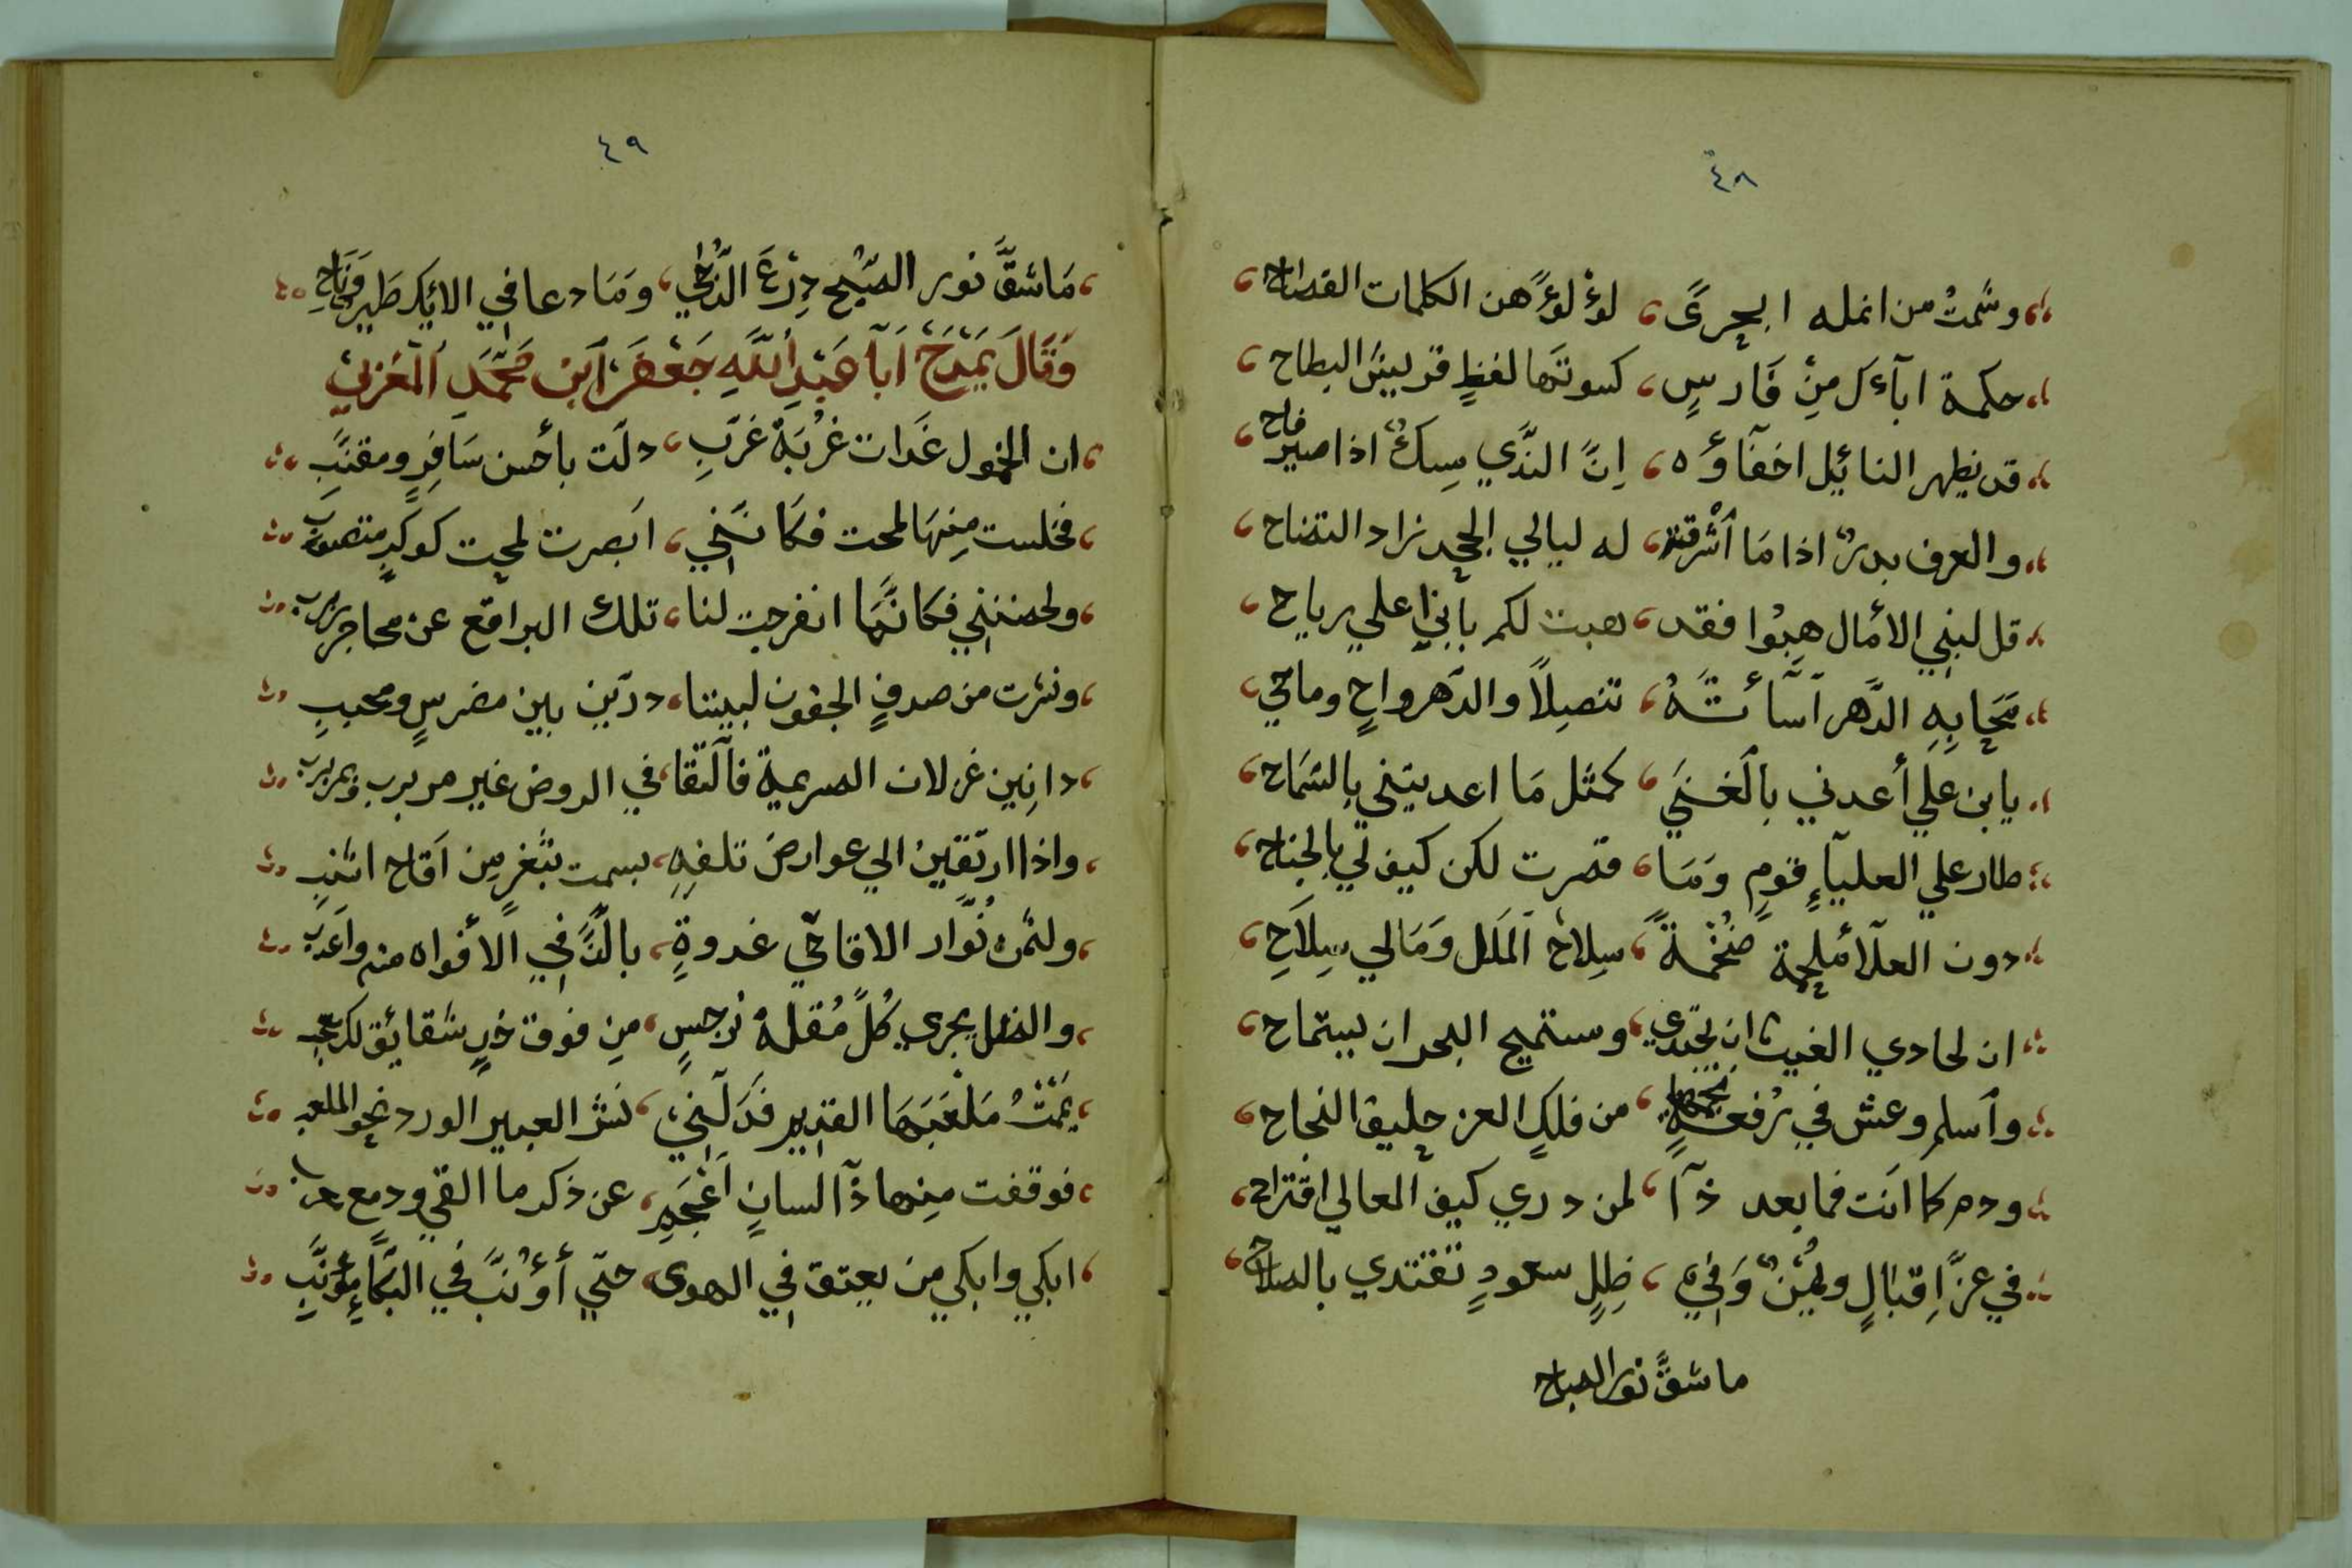 ٤٨
وشمتُ من انمله ابحرىً ، لوءلوءً هن الكلمات الفصاح
حكمة ابآءك مِنْ فَارسٍ ، كسوتَها لفظٍ قريشَ البطاح
قد يظهر النائيل اخفآؤُه ، اِنَّ النَّدي مِسكٌ اذا صير فاح
والعرف بدرٌ اذا مَا اَشْرقت ، له ليالي المجد زاد اتضاح
قل لبنِي الاَمال هِبُوا فقد ، هبت لكم بابن علي رياح
مَحَا بِهِ الدَّهر اَسَآئَتهُ ، تنصيلاً والدَهر واحٍ وماحي
يا بن عَلي أعدني بالَغنَي ، كمثل مَا اعديتني بالسَمَاح
طار علي العليآءِ قومٍ وَمَا ، قصرت لكن كيف لي بالجناح
دون العلآ مُلحمة ضخُمةً ، سِلاحُ اَلمَلل وَمَالي سِلاَحِ
ان لحادي الغيث ان يجتدي ، وستميح البحر ان يستماح
وٱسلم وعش في رُفعةٍ نجمها ، من فلكِ العز حليف النجاح
ودم كما اَنت فما بعد ذآ ، لمن دري كيف المعالي اقتراح
في عزَّ اِقبَالٍ ويُمنٌ وَفي ، ظِلٍ سعودٍ تغتدي بالصلاح
ما شقَّ نور الصباح
٤٩
مَا شقَّ نور الصّبح دِرْعَ الدّجي ، وَمَا دعا في الايك طَير وَنَاحِ
وَقَالَ يَمْدَحُ اَبَا عَبْدِ اَللَّهِ جَعْفَرَ اَبْن مُحَمَّدِ اَلمَغرَبيْ
ان الخمول غَدَات غرُبَة غرَّبِ ، دلَت بأحسن سَافِرٍ ومقنَّبِ
فخلست مِنهَا لمحت فكَانَّني ، اَبصرت لمحت كوكبٍ متصوب
ولحضننِي فكانَّمَا انفرجت لنا ، تلك البراقع عن محاجر ربرب
ونثرت من صدفِ الجفون لبيننا ، درَين بين مضرسٍ ومحببِ
دانِين غزلان الصريمة فآلتَقا ، في الروض غير مربرب ومربرب
واذا ارتَقين الي عوارض تلفهِ ، بسمت بثَغرٍ من اَقاح اشنبِ
ولثمن نُوَّار الاقاحي غدوةٍ ، بالذَّ في الأفواه منه واَعَذب
والطل يجري كُلَّ مُقلة نرجسٍ ، مِن فوق خدٍ شقايق لم
يَمَّمْتُ مَلْعَبَهَا القديم فَدَلَّنِي ، نشر العبير الورد نحو الملعب
فوقفت منها ذآ لسانٍ اَعْجَمٍ ، عن ذكر ما القي ودمع
ابكي وابكي من يعتق في الهوى ، حتّي أُؤنَّبَ في البُكَاءِ مؤنَّبِ